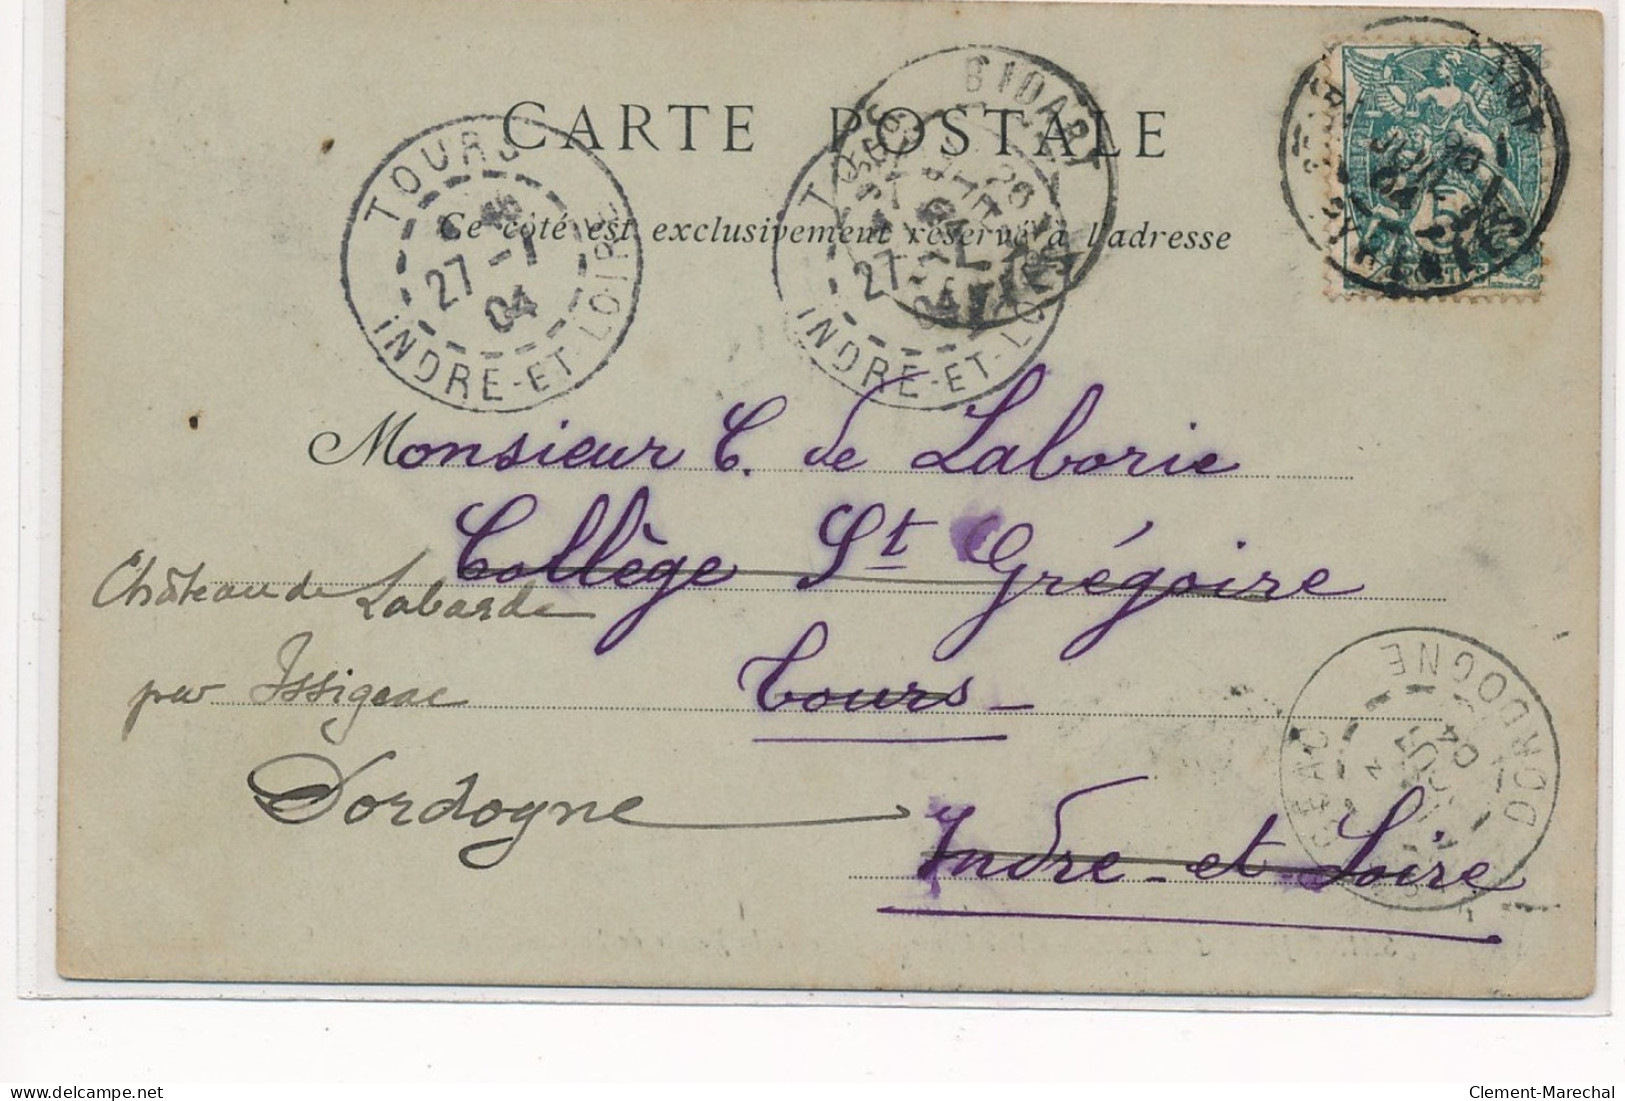 CARTE POSTALE
Ce côté est exclusivement réservé à l'adresse
TOURS
27 - 1
04
INDRE-ET-LOIRE
BIDART
27
04
INDRE-ET-LO
Monsieur C. de Laborie
Collège St Grégoire
Tours
Indre-et-Loire
Château de Labarde
par Issigeac
Dordogne
DORDOGNE
04
www.delcampe.net
Clement-Marechal